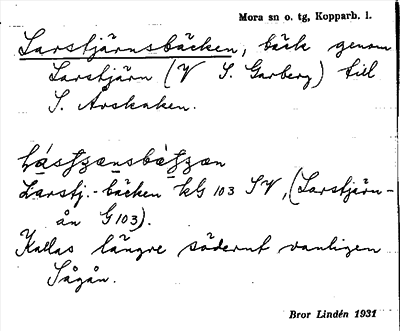 Mora sn o. tg, Kopparb. l.
Larstjärnsbäcken, bäck genom
Larstjärn (V S. Garberg) till
S. Åvskaken.
Larstj.-bäcken kG 103 SV, (Larstjärn-
ån G 103).
Kallas längre söderut vanligen
Sågån.
Bror Lindén 1931